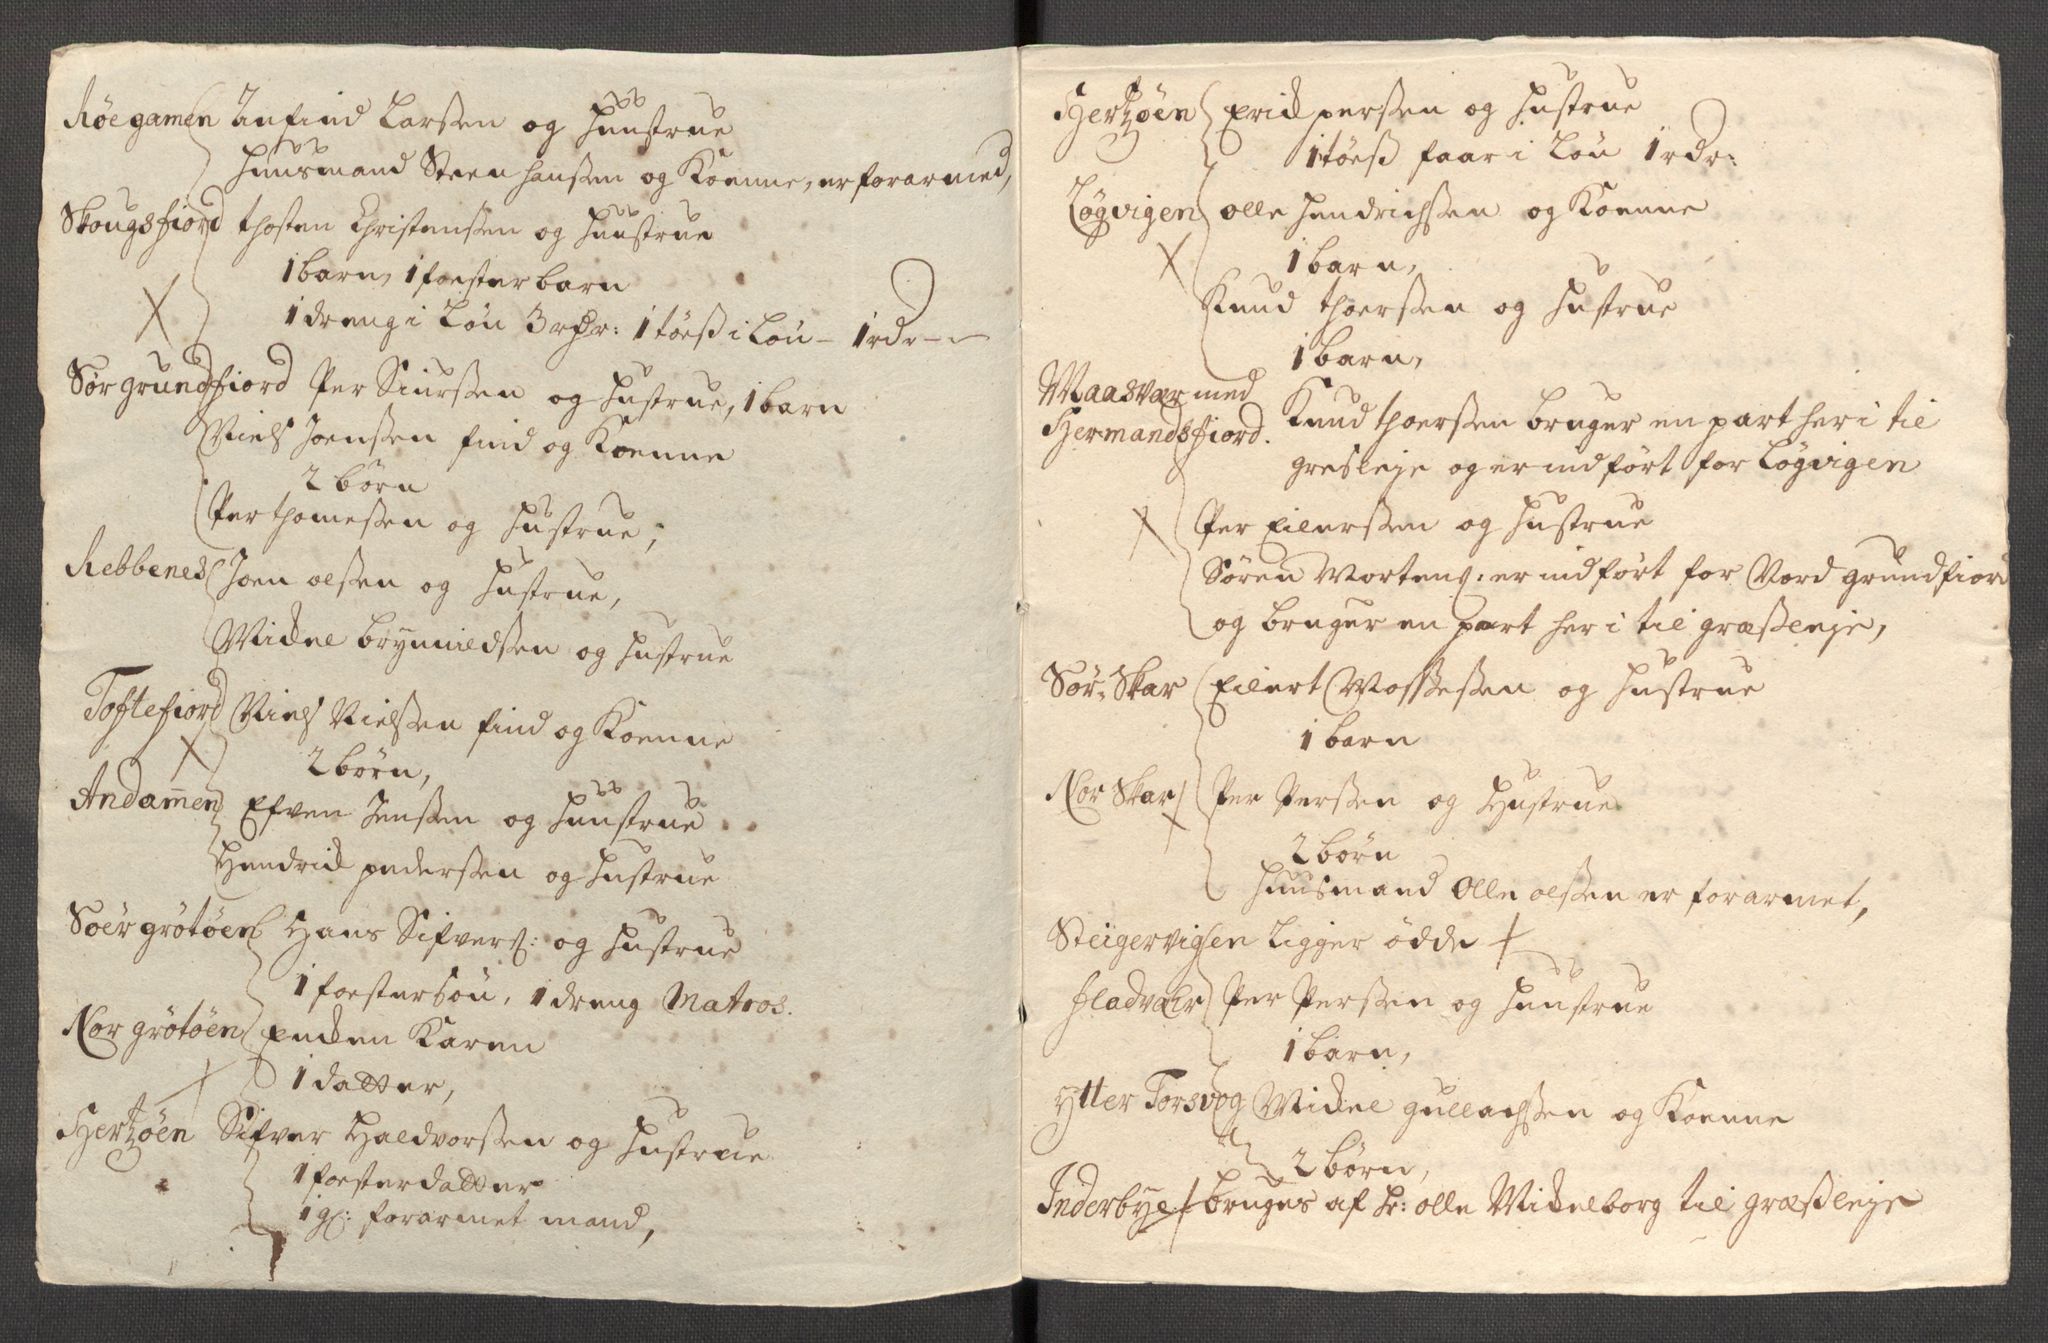 Røegamen Anfind Larssen og Huustrue
Huusmand Steen Hanssen og Koenne, er forarmed,
Skougsfiord thosten Christenssen og Huustrue
1 barn, 1 foesterbarn
1 dreng i Løn 3 rdr: 1 töeß i Løn - 1 rdr - -
Sør grundfiord Per Siurssen og Hustrue, 1 barn
Niels Joenssen find og Koenne
2 börn
Per thomessen og Hustrue,
Rebbenes Joen olssen og Hustrue,
Mickel brynnildssen og Hustrue
Toftefiord Niels Nielssen find og Koenne
2 börn,
Andamen Efven Jenssen og Huustrue
Hendrick pederssen og Hustrue
Soer grötöen Hans Sifvers: og Hustrue
1 foestersøn, 1 dreng Matros.
Nor grötöen Encken Karen
1 datter,
Hertzöen Sifver Haldvorssen og Hustrue
1 foesterdatter
1 gl: forarmet mand,
Hertzöen Erick perssen og Hustrue
1 töeß faar i Løn 1 rdr:
Løgvigen olle Hendrichssen og Koenne
1 barn,
Knud thoerssen og Hustrue
1 barn,
Maasvær med
Hermandsfiord. Knud thoerssen bruger en part her i til
gresleje og er indfört for Løgvigen
Per Eilerssen og Hustrue
Sören Mortens: er indfört for Nord grundfiord
og bruger en part her i til græssleje,
Sör-Skar Eilert Mossessen og Hustrue
1 barn
Nor Skar Per Perssen og Hustrue
2 börn
Huusmand Olle olssen er forarmet,
Steigervigen Ligger ödde
fladvær Per Perssen og Huustrue
1 barn,
Ytter Torsvog Mickel gullachssen og Koenne
2 börn,
Inderbye bruges af Hr: olle Mickelborg til græssleje